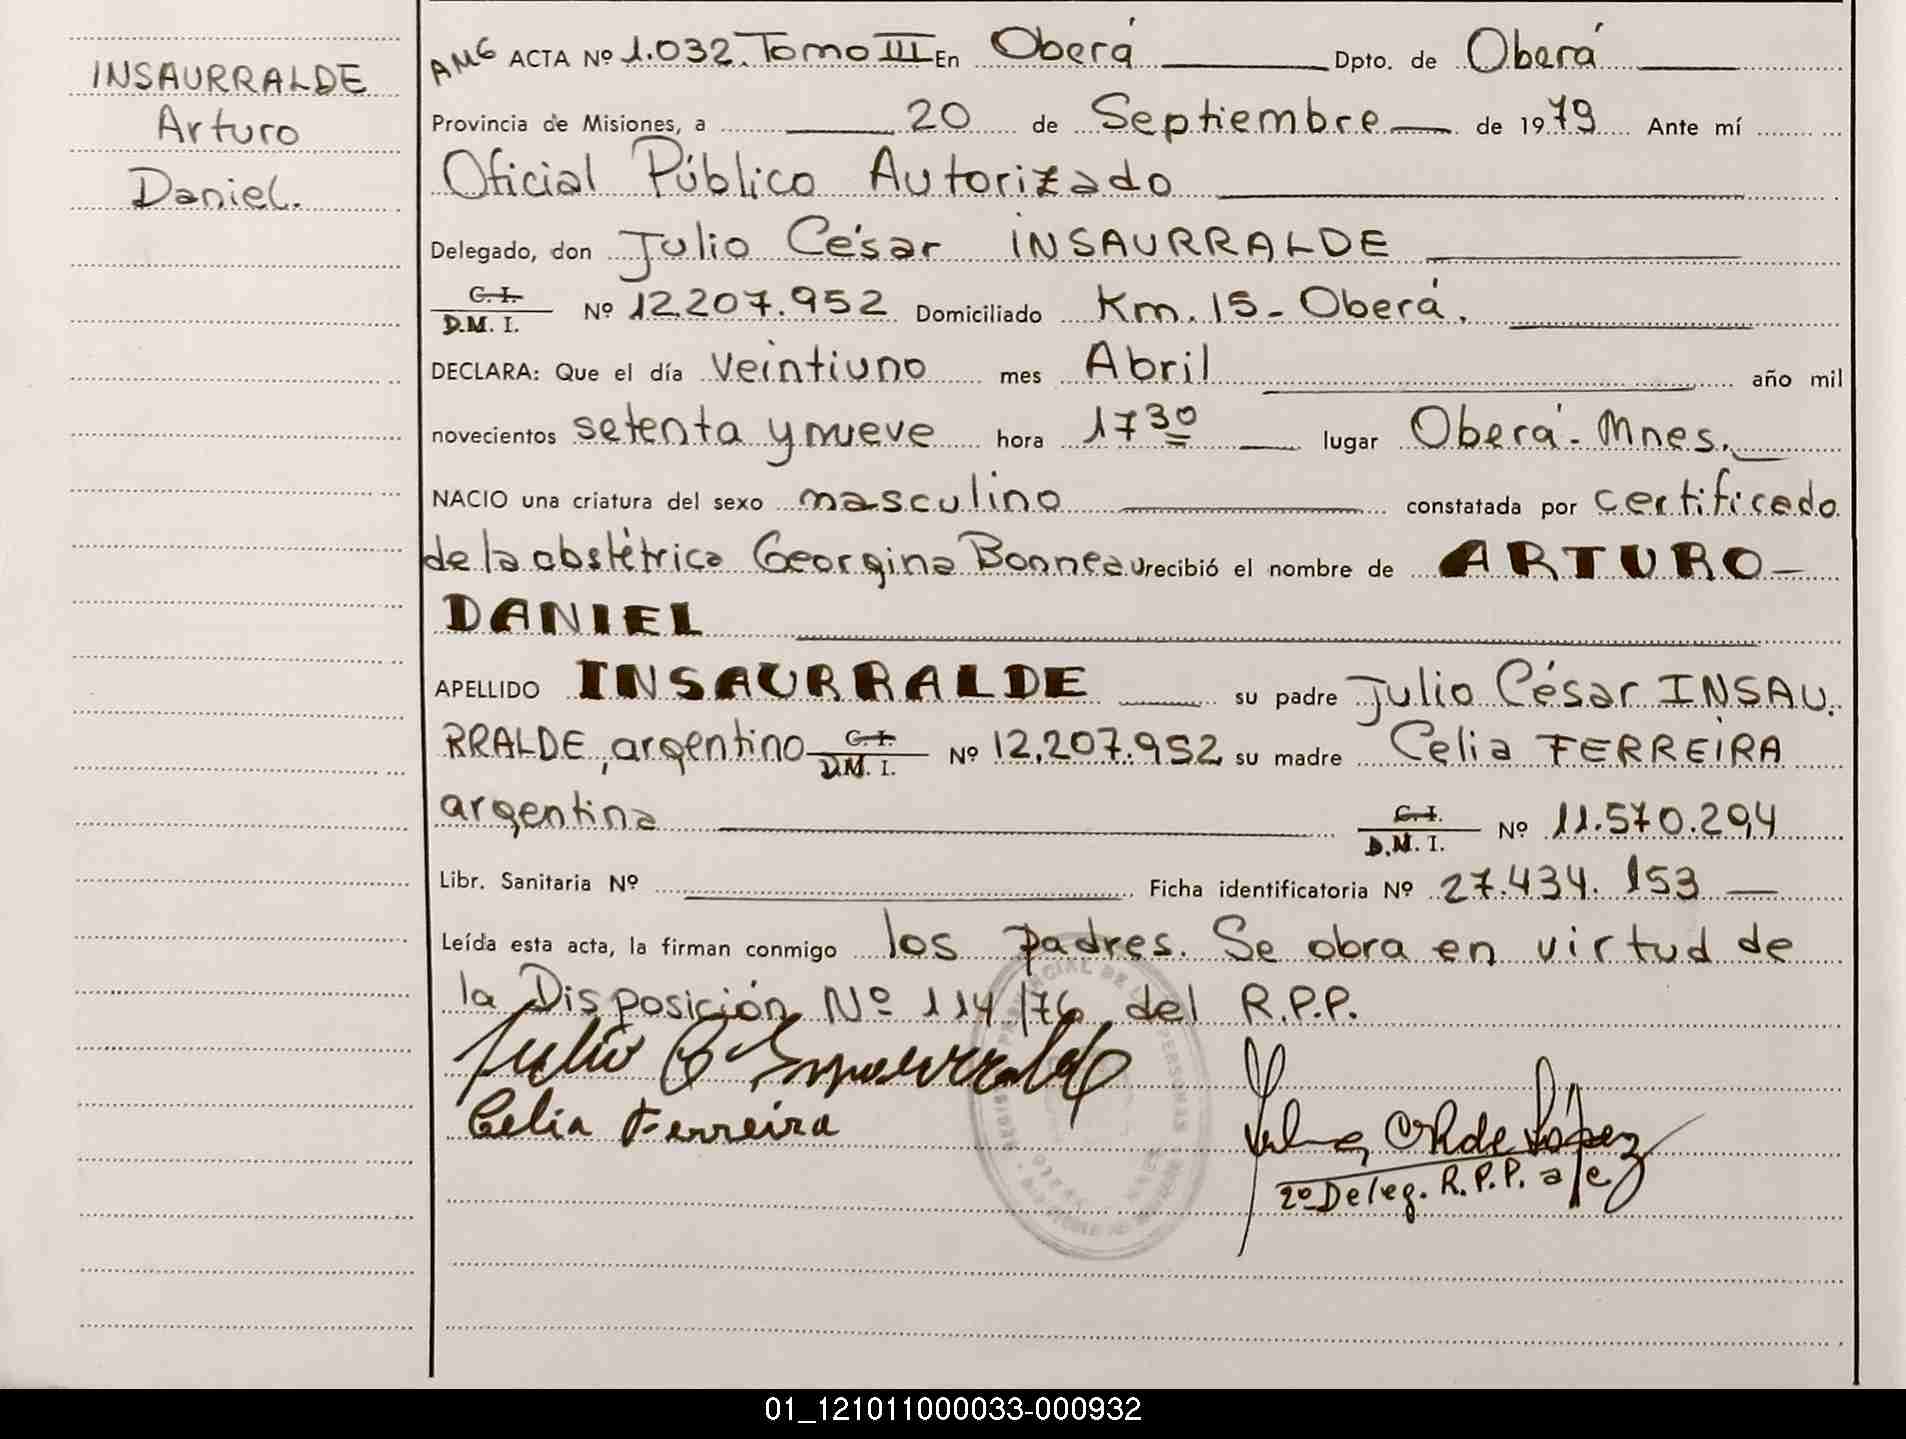 INSAURRALDE
Arturo
Daniel.
AMG ACTA Nº 1.032. Tomo III En Oberá Dpto. de Oberá
Provincia de Misiones, a 20 de Septiembre de 1979 Ante mí
Oficial Público Autorizado
Delegado, don Julio César INSAURRALDE
C. I.
D.M. I. Nº 12.207.952 Domiciliado Km. 15 - Oberá.
DECLARA: Que el día veintiuno mes Abril año mil
novecientos setenta y nueve hora 17 30 lugar Oberá - Mnes.
NACIO una criatura del sexo masculino constatada por certificado
de la obstétrica Georgina Bonneau recibió el nombre de ARTURO
DANIEL
APELLIDO INSAURRALDE su padre Julio César INSAU.
RRALDE, argentino C. I. D.M. I. Nº 12.207.952 su madre Celia FERREIRA
argentina C. I. D.M. I. Nº 11.570.294
Libr. Sanitaria Nº Ficha identificatoria Nº 27.434.153
Leída esta acta, la firman conmigo los padres. Se obra en virtud de
la Disposición Nº 114/76 del R.P.P.
Julio C Insaurralde
Celia Ferreira
de López
2º Deleg. R.P.P. a/c
01_121011000033-000932